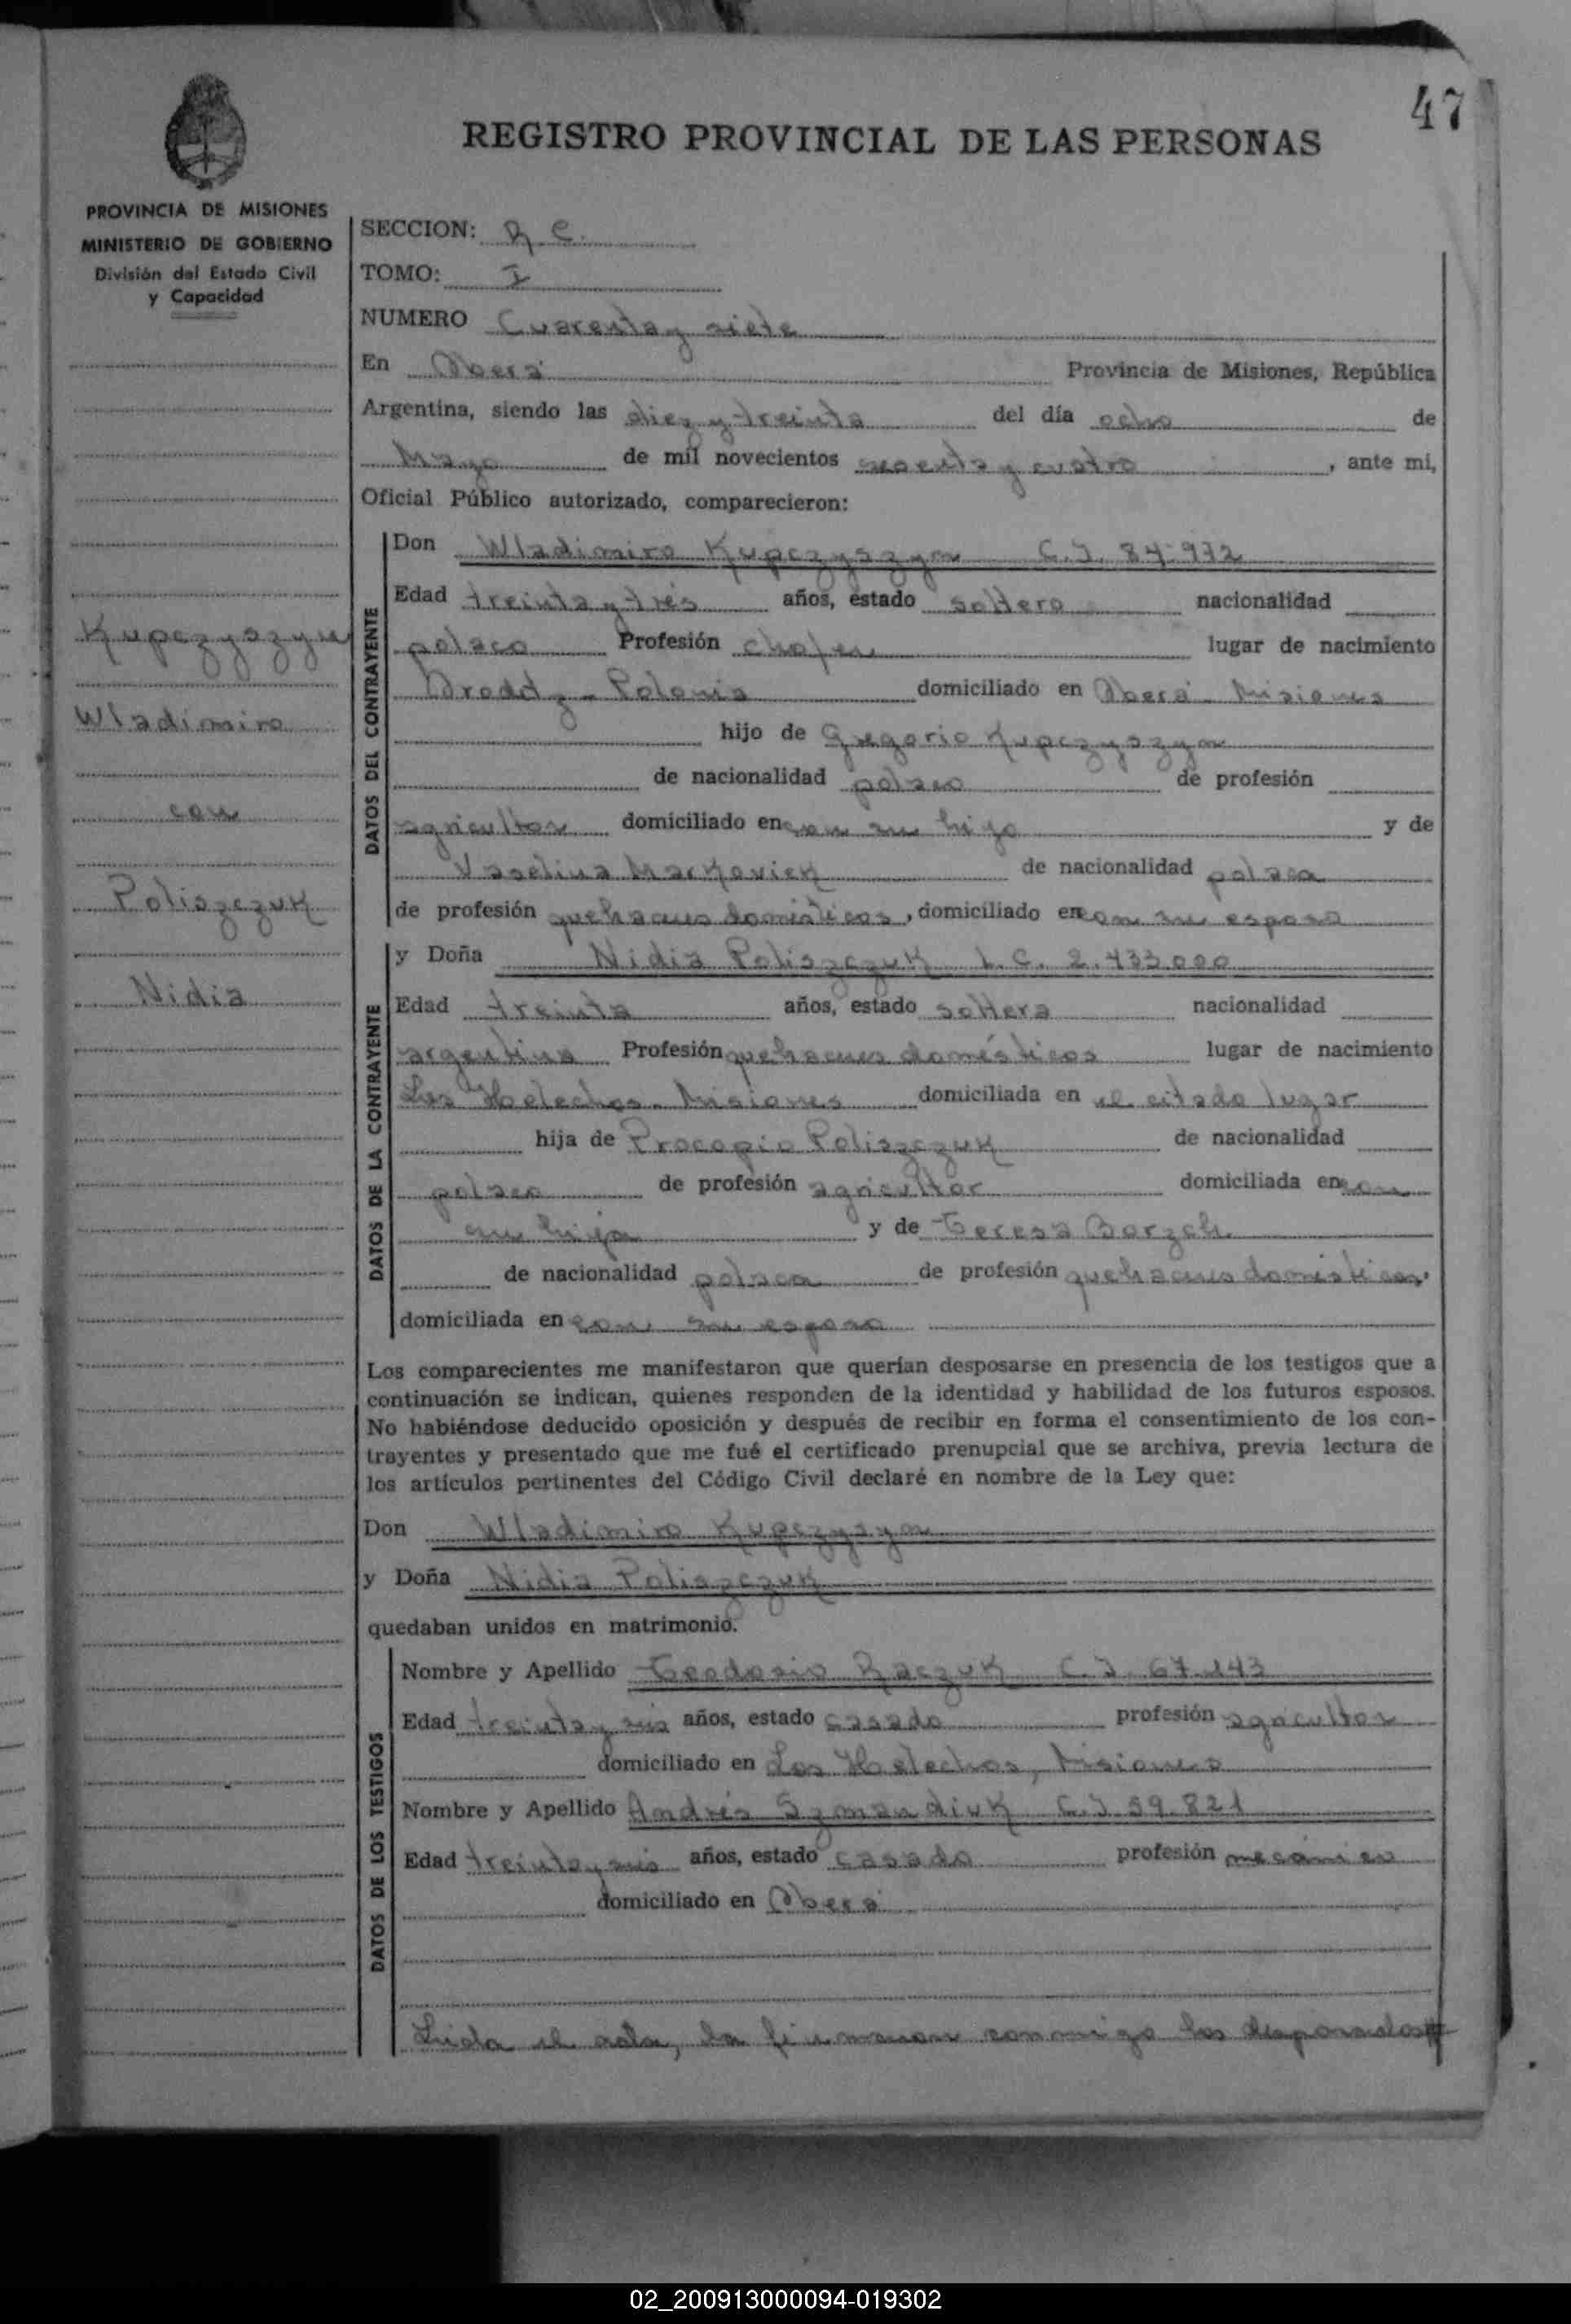 47
REGISTRO PROVINCIAL DE LAS PERSONAS
PROVINCIA DE MISIONES
MINISTERIO DE GOBIERNO
División del Estado Civil
y Capacidad
Kupczyszyn
Wladimiro
con
Poliszczuk
Nidia
SECCION: R C.
TOMO: I
NUMERO Cuarenta y siete
En Oberá Provincia de Misiones, República
Argentina, siendo las diez y treinta del día ocho de
Mayo de mil novecientos sesenta y cuatro, ante mi,
Oficial Público autorizado, comparecieron:
DATOS DEL CONTRAYENTE
Don Wladimiro Kupczyszyn C.I. 84.972
Edad treinta y tres años, estado soltero nacionalidad
polaco Profesión chofer lugar de nacimiento
Polonia domiciliado en Oberá Misiones
hijo de Gregorio Kupczyszyn
de nacionalidad polaco de profesión
agricultor domiciliado en con su hijo y de
Vaselina Markoviek de nacionalidad polaca
de profesión quehaceres domésticos, domiciliado en con su esposo
DATOS DE LA CONTRAYENTE
y Doña Nidia Poliszczuk L.C. 2.433.000
Edad treinta años, estado soltera nacionalidad
argentina Profesión quehaceres domésticos lugar de nacimiento
Los Helechos - Misiones domiciliada en el citado lugar
hija de Procopio Poliszczuk de nacionalidad
polaco de profesión agricultor domiciliada en con
su hija y de Teresa Borzch
de nacionalidad polaca de profesión quehaceres domésticos,
domiciliada en con su esposo
Los comparecientes me manifestaron que querían desposarse en presencia de los testigos que a
continuación se indican, quienes responden de la identidad y habilidad de los futuros esposos.
No habiéndose deducido oposición y después de recibir en forma el consentimiento de los con-
trayentes y presentado que me fué el certificado prenupcial que se archiva, previa lectura de
los artículos pertinentes del Código Civil declaré en nombre de la Ley que:
Don Wladimiro Kupczysyn
y Doña Nidia Poliszczuk
quedaban unidos en matrimonio.
DATOS DE LOS TESTIGOS
Nombre y Apellido Teodosio Raczuk C.I. 67.143
Edad treinta y seis años, estado casado profesión agricultor
domiciliado en Los Helechos, Misiones
Nombre y Apellido Andrés Szmandiuk C.I. 59.821
Edad treinta y seis años, estado casado profesión mecánico
domiciliado en Oberá
Leida el acta, la firmaron conmigo los desposados
02_200913000094-019302